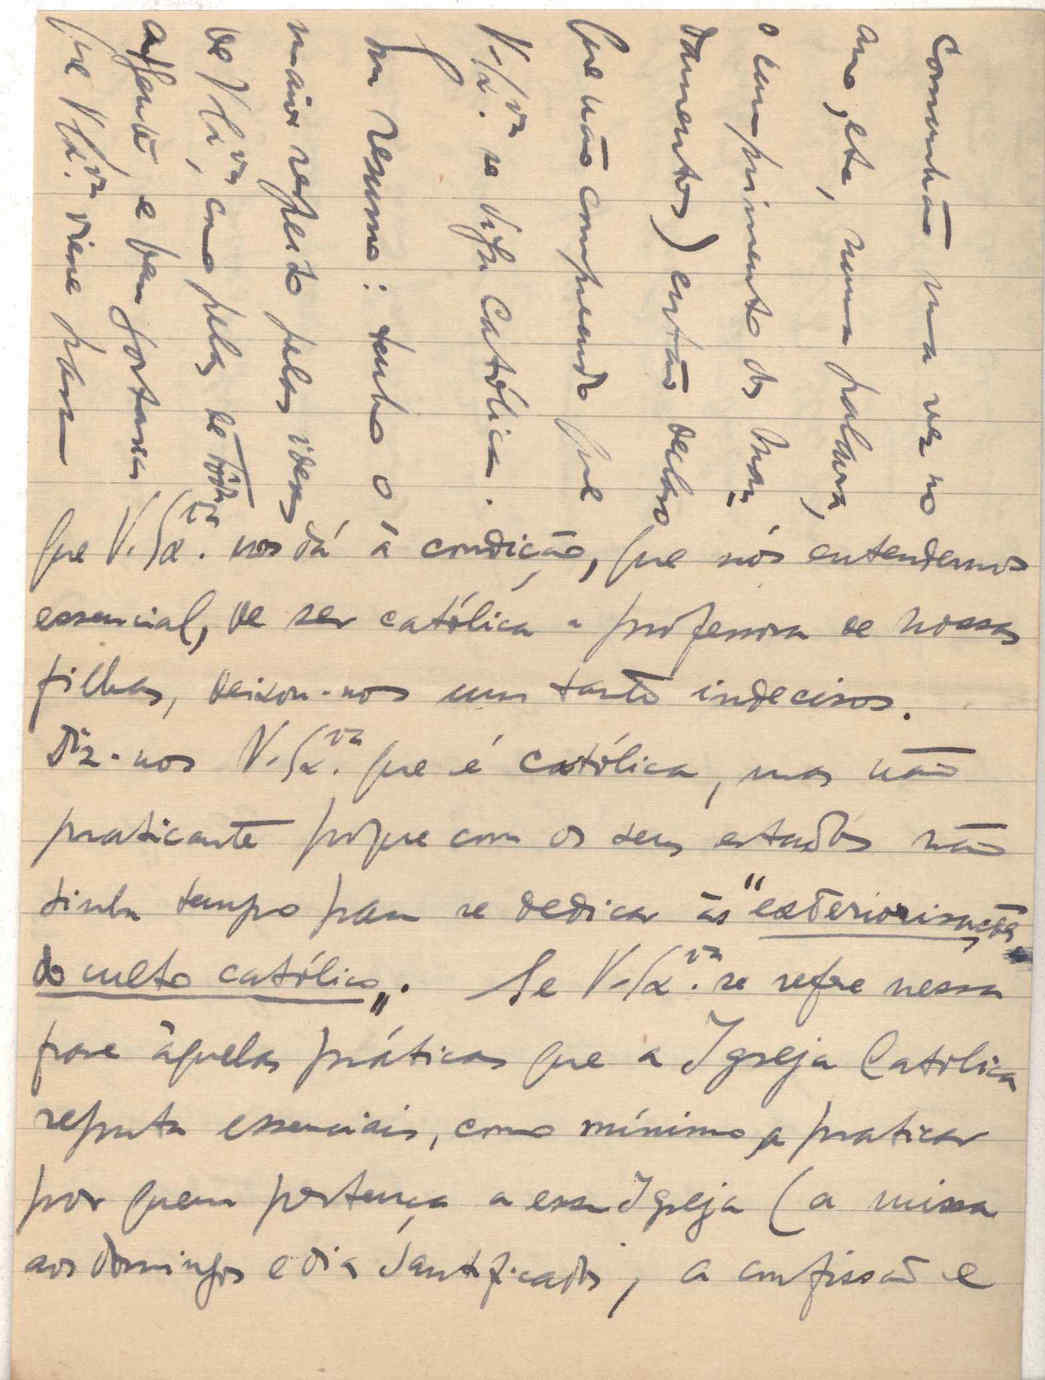 que V. Sa. cia nos dá à condição, que nós entendemos
essencial, de ser católica a professora de nossas
filhas, deixou-nos um tanto indecisos.
Diz-nos V. Sa. cia que é católica, mas não
praticante porque com os seus estudos não
tinha tempo para se dedicar às "exteriorisações
do culto católico". Se V. Sa. cia se refere nessa
frase àquelas práticas que a Igreja Católica
reputa essenciais, como mínimo, a praticar
por quem pertença a essa Igreja (a missa
aos domingos e dias santificados, a confissão e
Comunhão uma vez no
ano, etc, numa palavra,
o cumprimento dos Man=
damentos) então declaro
que não compreendo que
V. Sa. cia se diga Católica.
Em resumo: tenho o
maior respeito pelas ideas
de V. Sa. cia, como pelas de tôda
a gente e
que V. Sa. cia viesse para